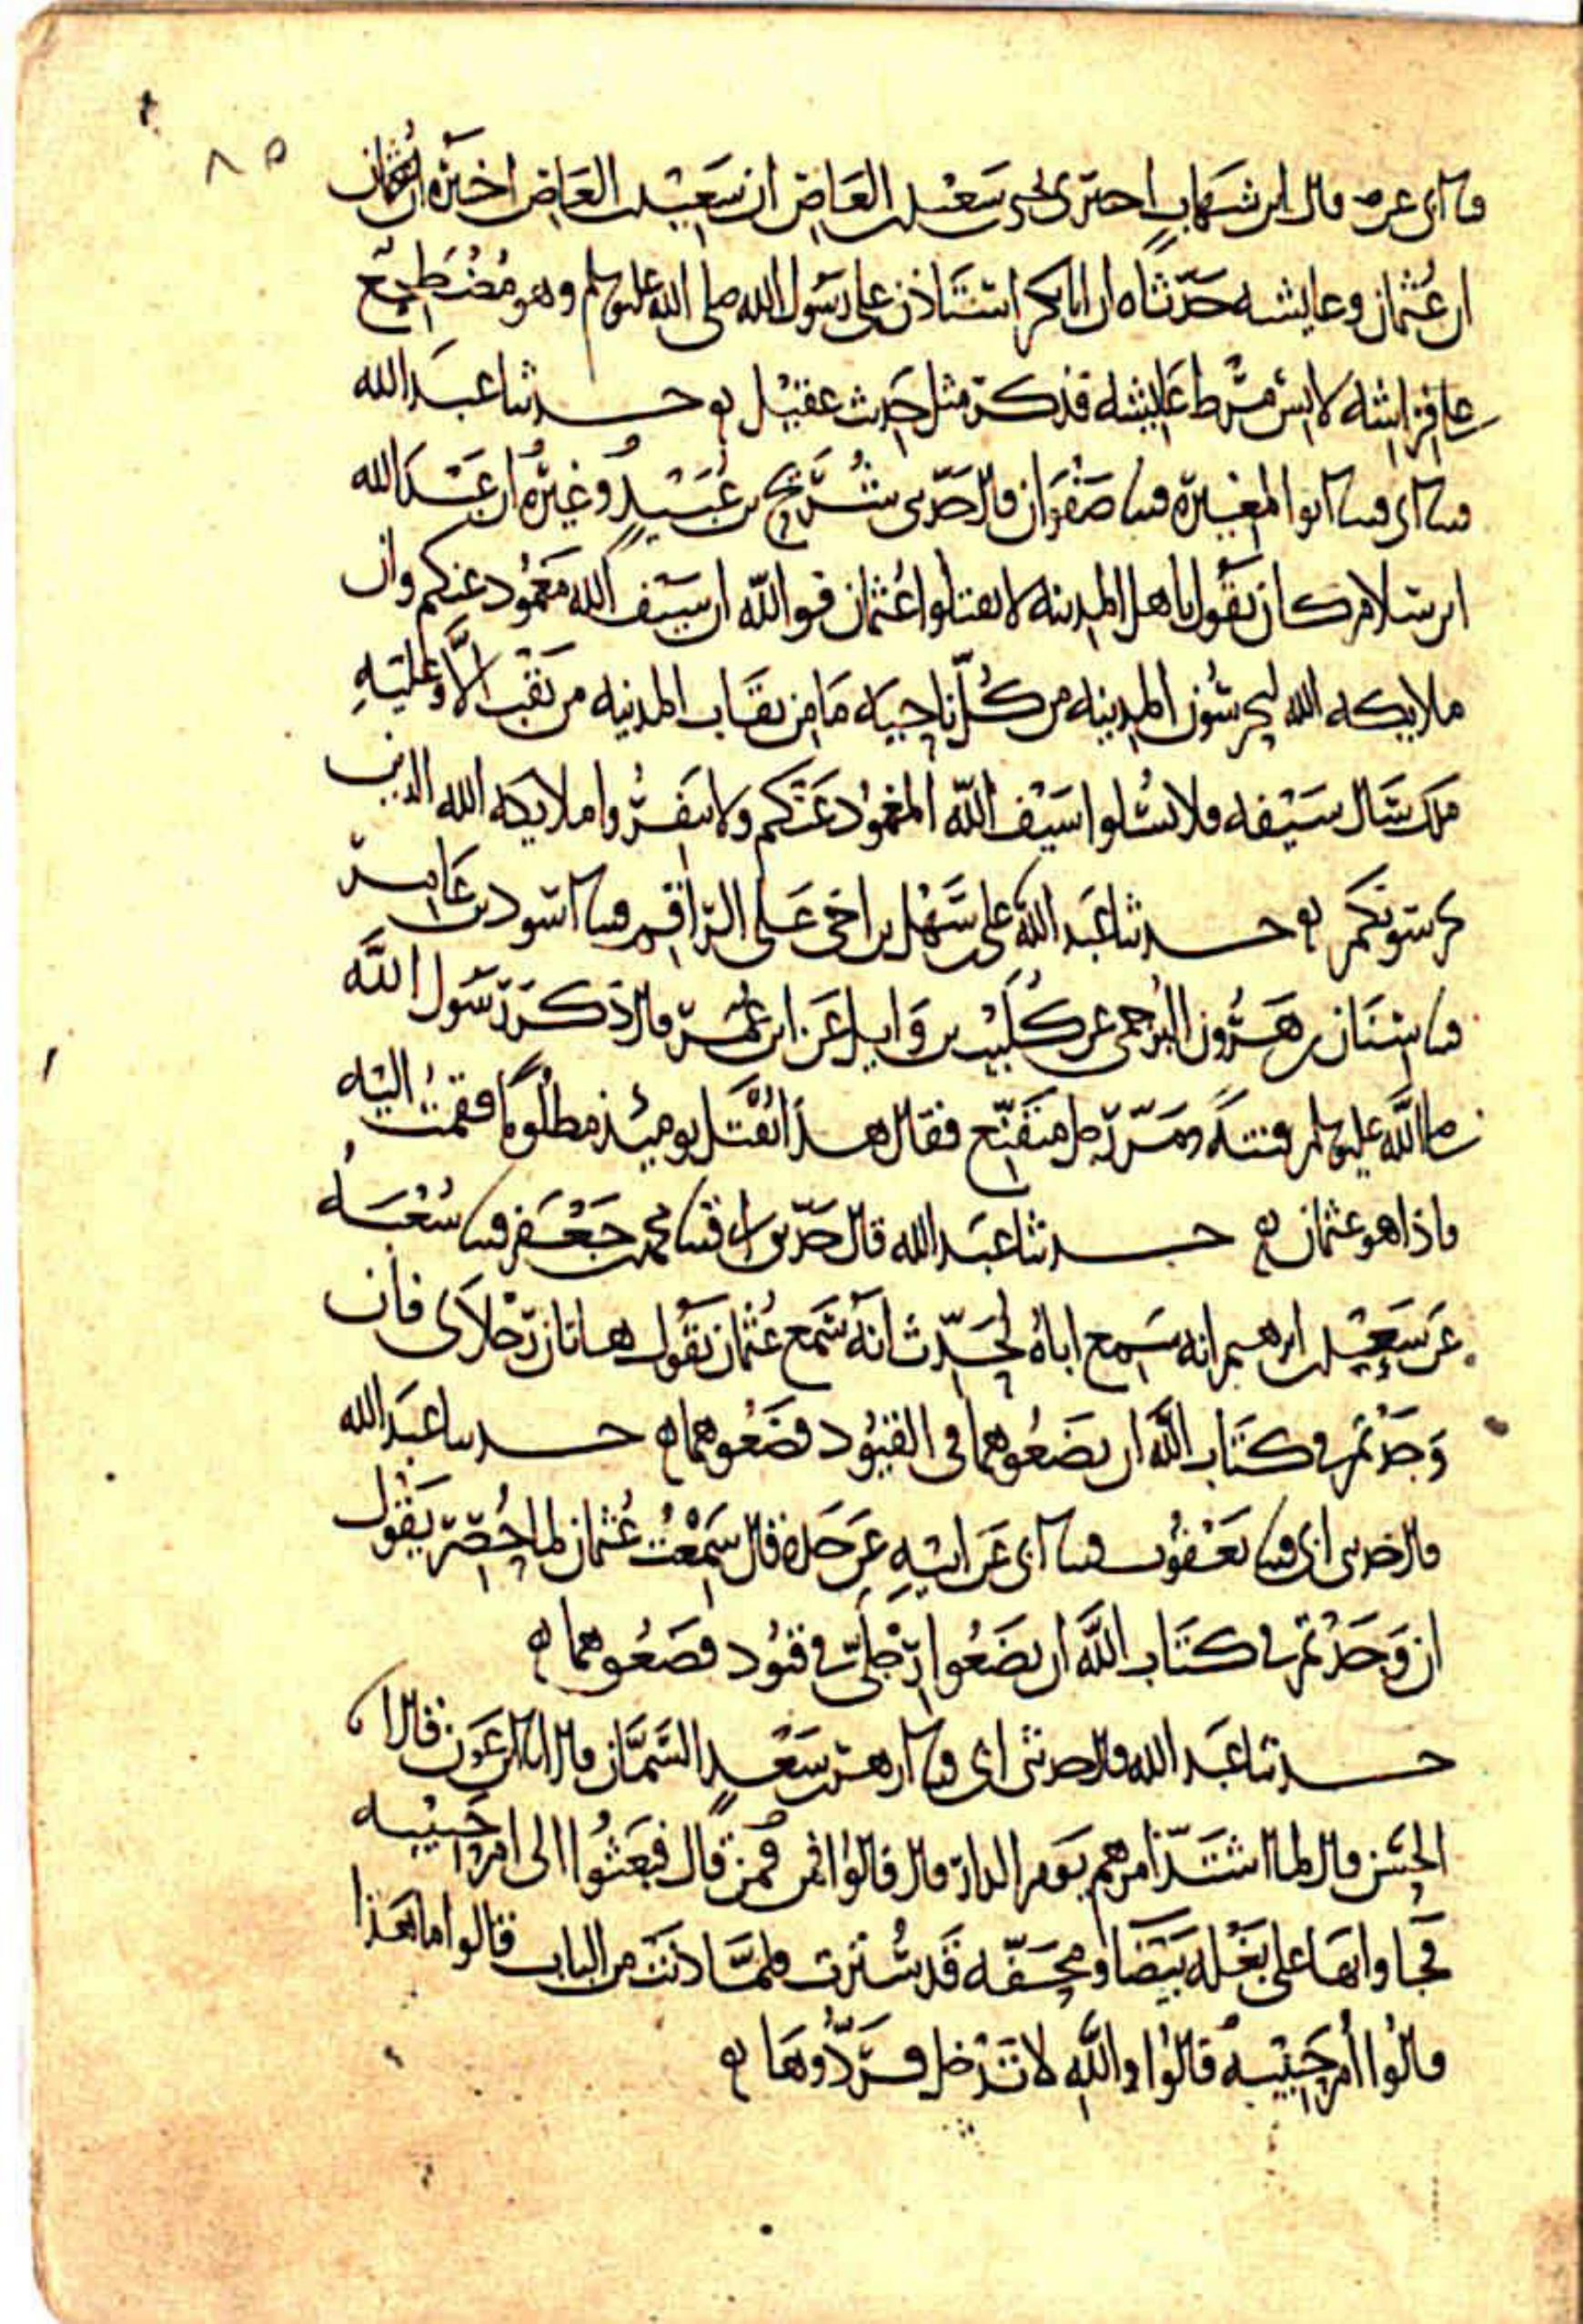 ٨٥
قثنا ابي عن صالح قال ابن شهاب اخبرني يحيى بن سعيد بن العاص ان سعيد بن العاص اخبره ان عثمان
ان عثمان وعايشه حدثاه ان ابا بكر استاذن على رسول الله صلى الله عليه وسلم وهو مضطجع
على فراشه لابس مرط عايشه فذكر مثل حديث عقيل حدثنا عبد الله
قثنا ابي قثنا ابو المغيرة قثنا صفوان قال حدثني شريح بن عبيد وغيره ان عبد الله
ابن سلام كان يقول يا هل المدينه لا تقتلوا عثمان فوالله ان سيف الله مغمود عنكم وان
ملايكه الله ليحرسون المدينه من كل ناحيه ما من نقاب المدينه من نقب الا وعليه
ملك سال سيفه فلا تسلوا سيف الله المغمود عنكم ولا تنفروا ملايكه الله الذين
يحرسونكم حدثنا عبد الله علي بن سهل بن اخي علي الراقم قثنا اسود بن عامر
قثنا سنان بن هرون البرجمي عن كليب بن وايل عن ابن عمر قال ذكر رسول الله
صلى الله عليه وسلم فتنة ومر رجل متقنع فقال هذا يقتل يوميذ مظلوما فقمت اليه
فاذا هو عثمان حدثنا عبد الله قال حدثني ابي قثنا محمد بن جعفر قثنا شعبه
عن سعد بن ابرهيم انه سمع اباه يحدث انه سمع عثمان يقول هاتان رجلاي فان
وجدتم في كتاب الله ان تضعوهما في القيود فضعوهما حدثنا عبد الله
قال حدثني ابي قثنا يعقوب قثنا ابي عن ابيه عن جده قال سمعت عثمان لما حصر يقول
ان وجدتم في كتاب الله ان تضعوا رجلي في قيود فضعوهما
حدثنا عبد الله قال حدثني ابي قثنا ازهر بن سعد السمان قال انا ابن عون قال انا
الحسن قال لما اشتد امرهم يوم الدار قال قالوا فمن فمن قال فبعثوا الى ام حبيبه
فجاوا بها على بغله بيضا ومحفه قد سترت فلما دنت من الباب قالوا ما هذا
قالوا ام حبيبه قالوا والله لا تدخل فردوها